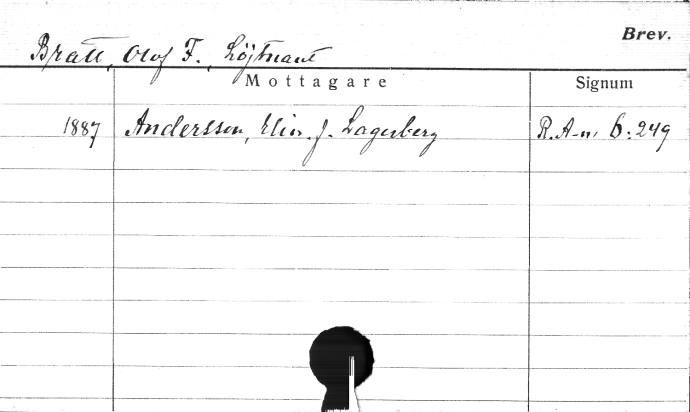 Brev.
Bratt, Olof F., Löjtnant
Mottagare Signum
1887 Andersson, Elin. f. Lagerberg R.A-n, 6:249